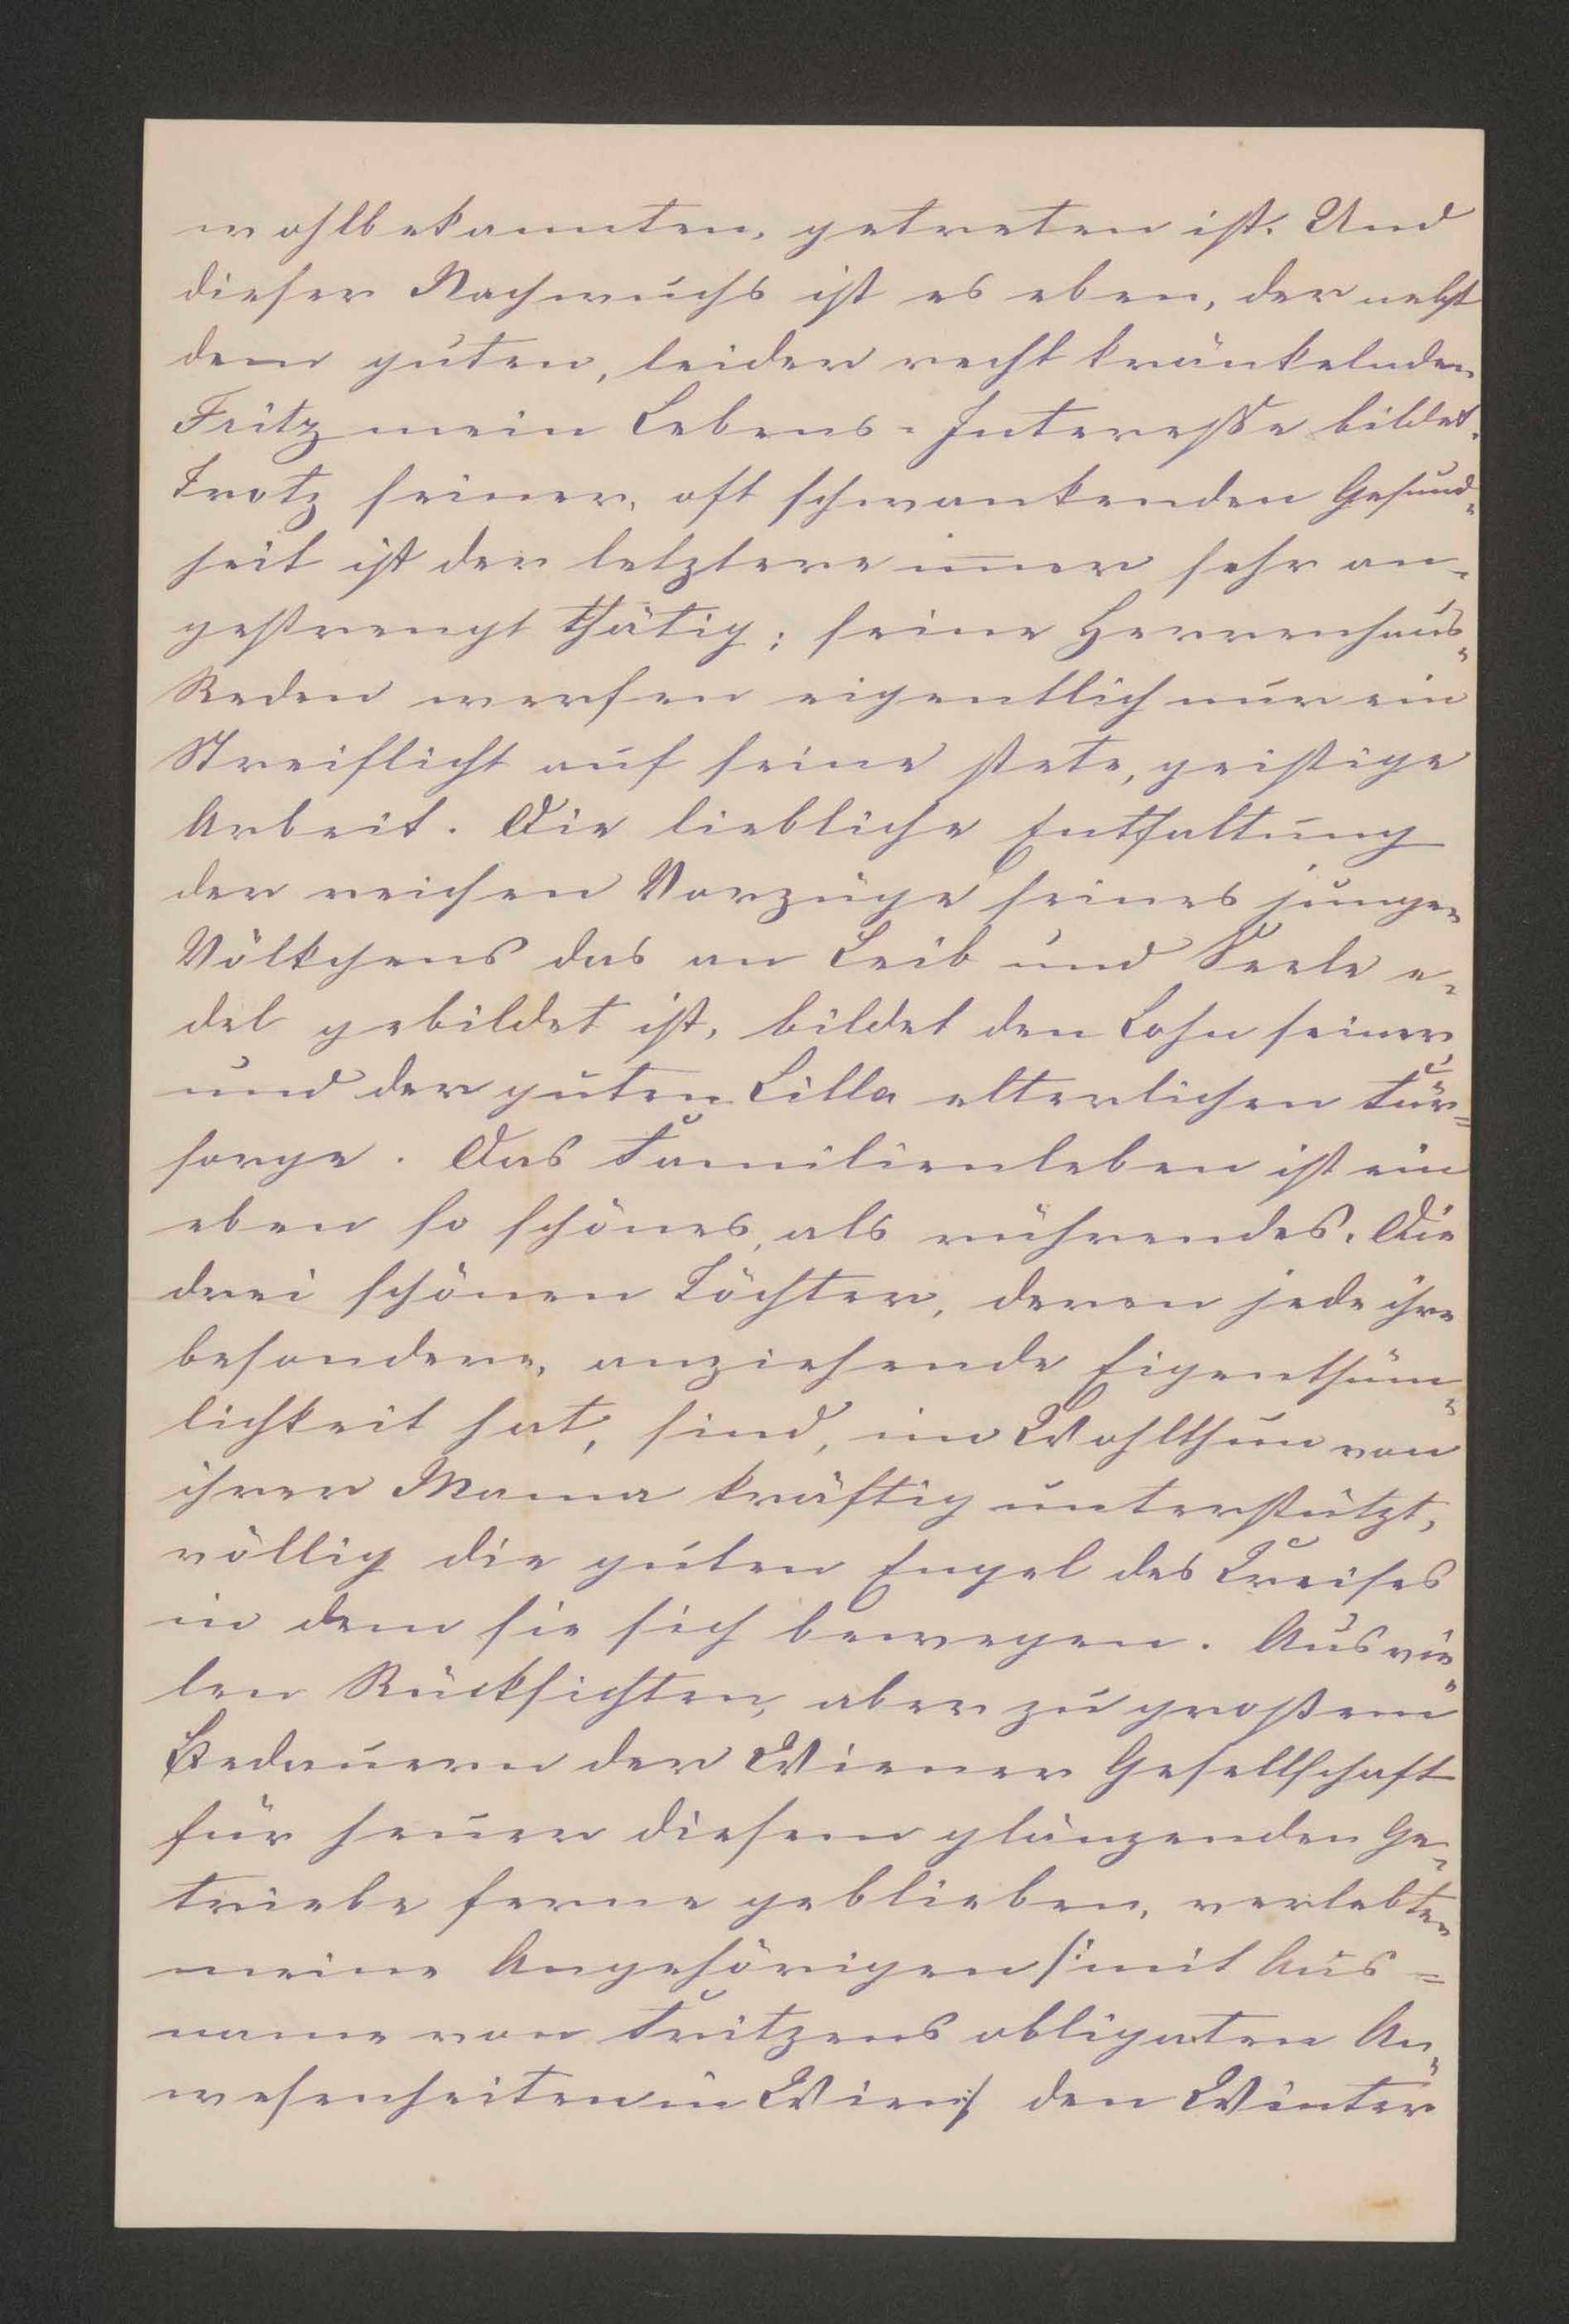 wohlbekannten, getreten ist. Und
dieser Nachwuchs ist es eben, der nebst
dem guten, leider recht kränkelnden
Fritz mein Lebens-Interesse bildet.
Trotz seiner, oft schwankenden Gesund-
heit ist der letztere im̅er sehr an-
gestrengt thätig; seine Herrenhaus-
Reden werfen eigentlich nur ein
Streiflicht auf seine stete, geistige
Arbeit. Die liebliche Entfaltung
der reichen Vorzüge seines jungen
Völkchens das an Leib und Seele e-
del gebildet ist, bildet den Lohn seiner
und der guten Lilla elterlichen Für-
sorge. Das Familienleben ist ein
eben so schönes, als rührendes. Die
drei schönen Töchter, deren jede ihre
besondere, anziehende Eigenthüm-
lichkeit hat, sind, im Wohlthun von
ihrer Mama kräftig unterstützt,
völlig die guten Engel des Creises
in dem sie sich bewegen. Aus vie-
len Rücksichten, aber zu großem
Bedauern der Wiener Gesellschaft
für heuer diesem glänzenden Ge-
triebe ferne geblieben, verlebten
meine Angehörigen /:mit Aus-
name von Fritzens obligaten An-
wesenheiten in Wien:/ den Winter